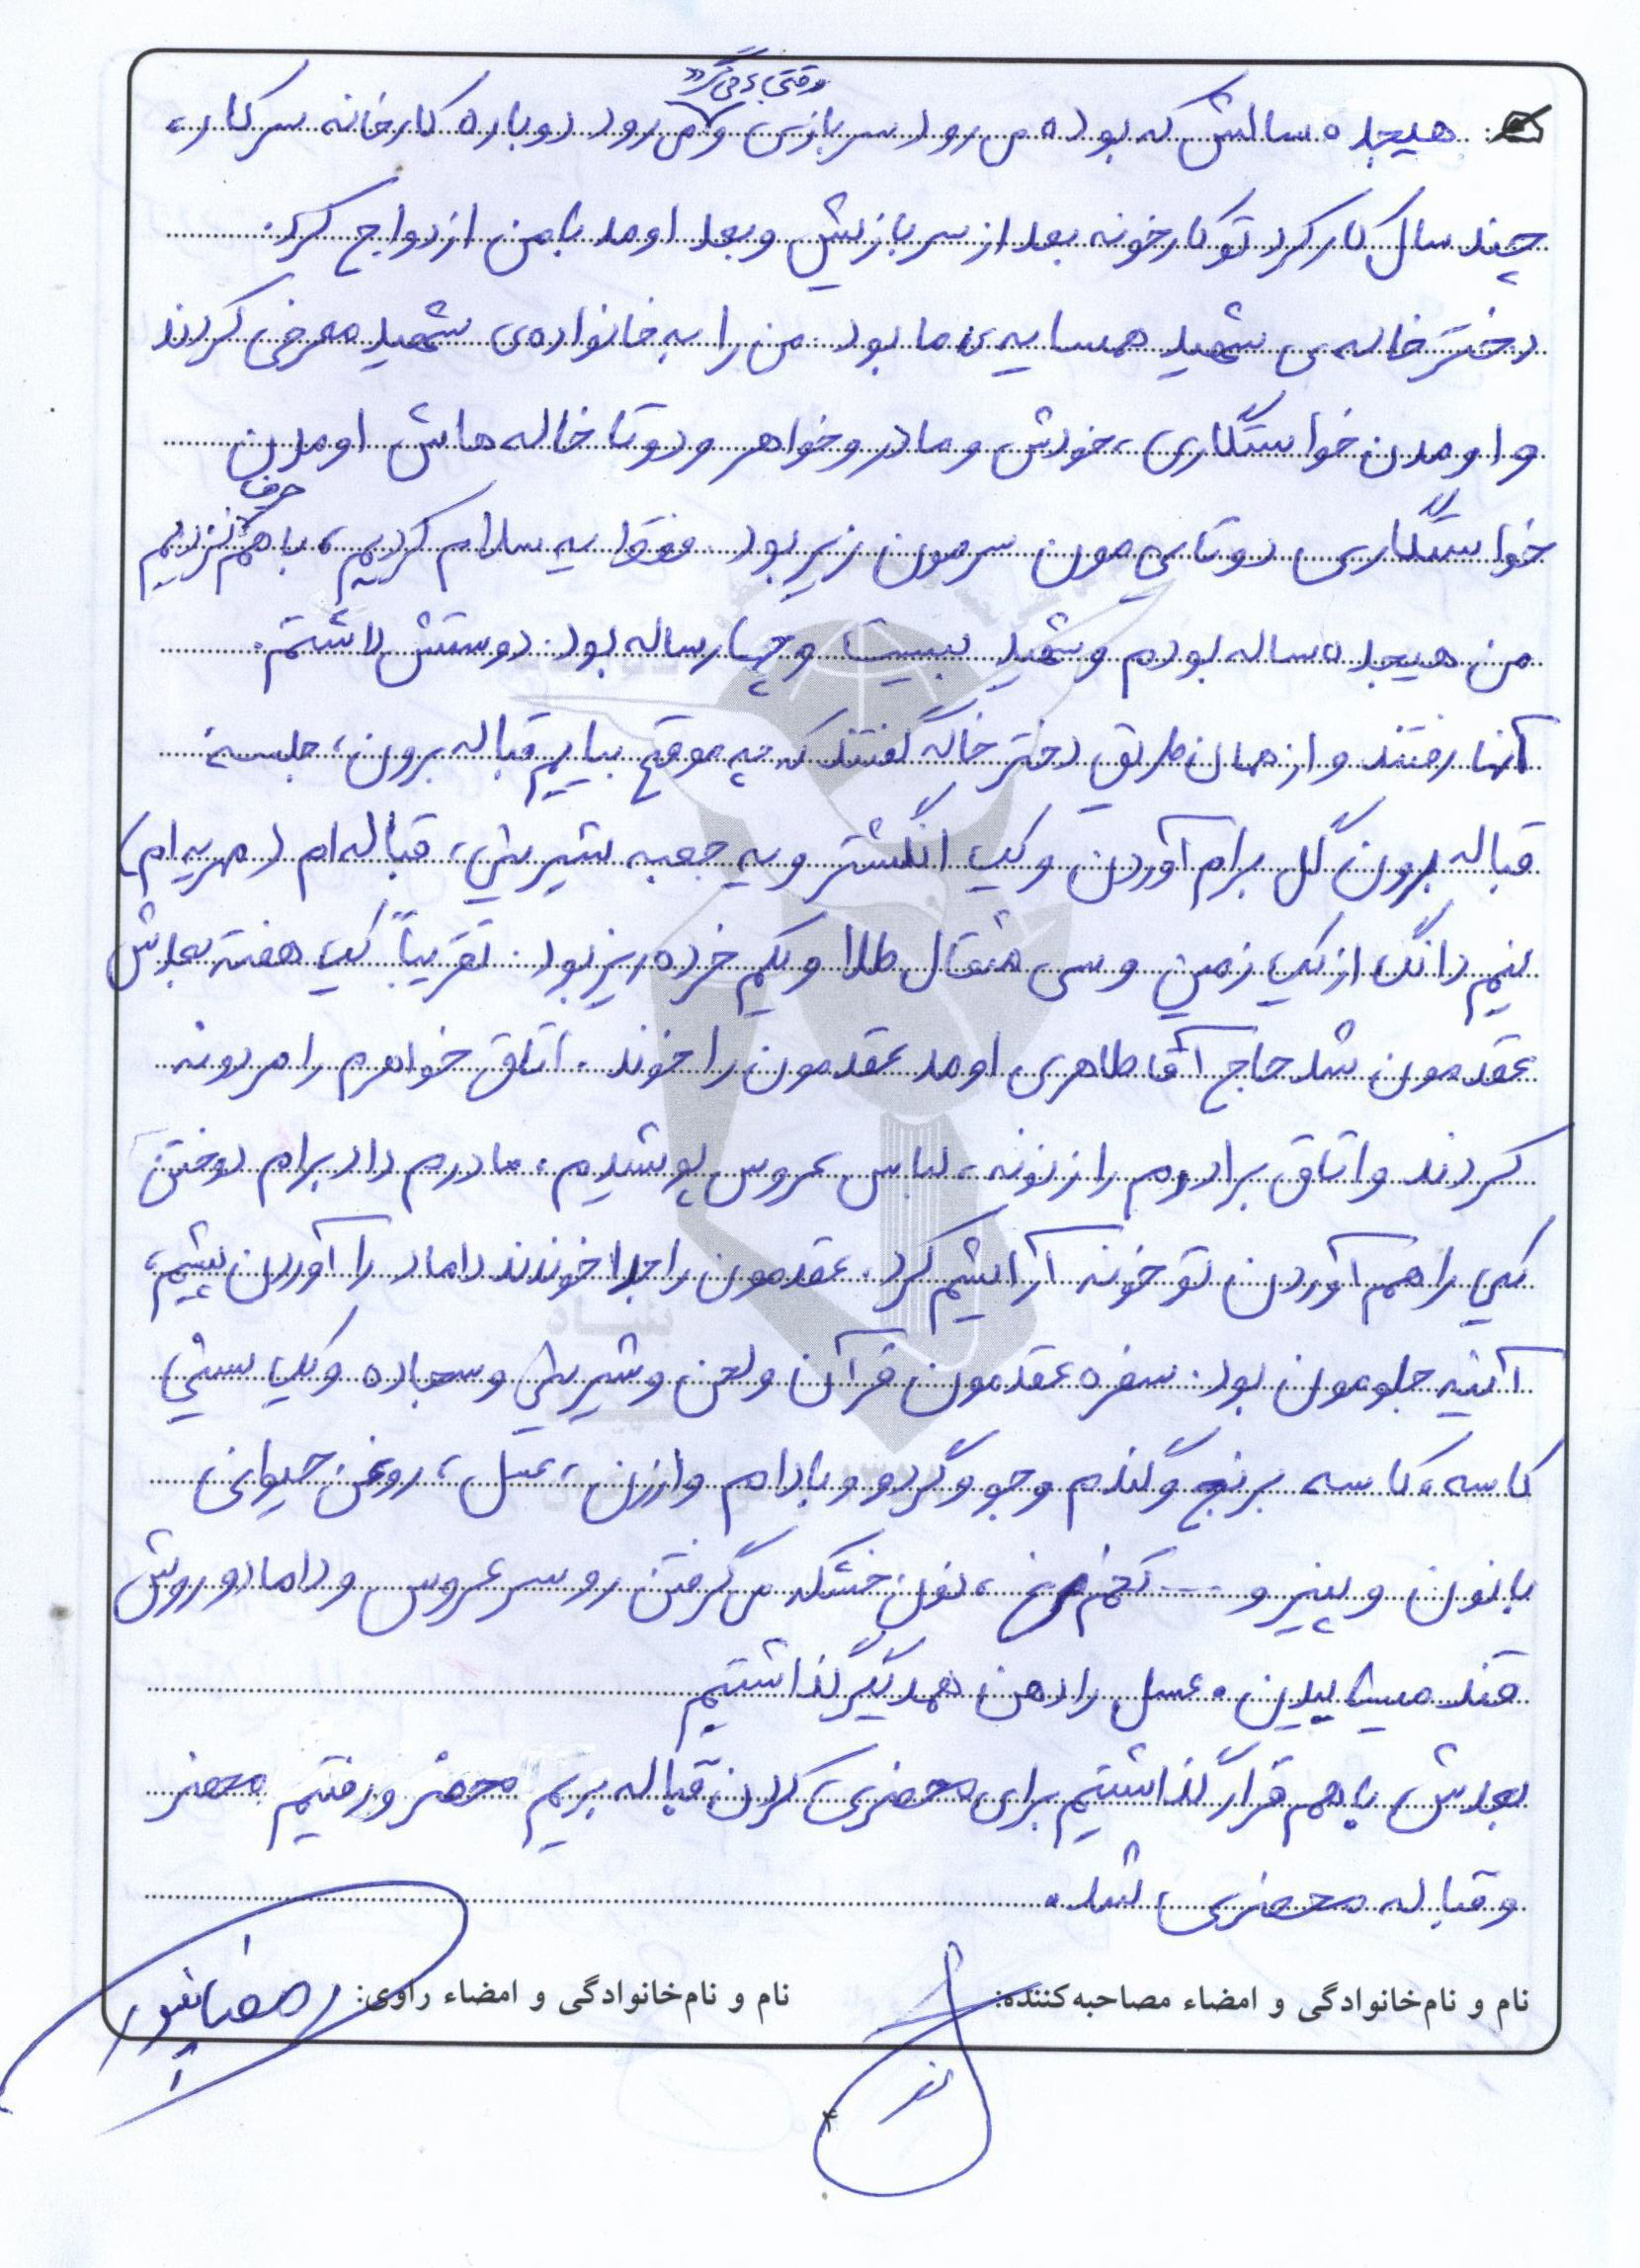 هیجده سالش که بوده می رود سربازی و وقتی برمی گردد می رود دوباره کارخانه سرکار،
چند سال کار کرد تو کارخونه بعد از سربازیش و بعد اومد با من ازدواج کرد.
دختر خاله ی شهید همسایه ی ما بود. من را به خانواده ی شهید معرفی کردند
و اومدن خواستگاری، خودش و مادر و خواهر و دوتا خاله هاش اومدن
خواستگاری دوتایی مون سرمون زیر بود. فقط یه سلام کردیم، با هم حرف نزدیم
من هیجده ساله بودم و شهید بیست و چهار ساله بود. دوستش داشتم.
آنها رفتند و از همان طریق دختر خاله گفتند که چه موقع بیایم قباله برون، جلسه ی
قباله برون گل برام آوردن و یک انگشتر و یه جعبه شیرینی، قباله ام (مهریه ام)
نیم دانگ از یک زمین و سی مثقال طلا و یکم خرده ریز بود. تقریباً یک هفته بعدش
عقدمون شد حاج آقا طاهری اومد عقدمون را خوند. اتاق خواهرم را مردونه
کردند و اتاق برادرم را زنونه، لباس عروس پوشیدم. مادرم داد برام دوختن
یکی را هم آوردن تو خونه آرایشم کرد. عقدمون را جدا خوندند داماد را آوردن پیشم،
آئینه جلومون بود. سفره عقدمون قرآن و لحن و شیرینی و سجاده و یک سینی
کاسه، کاسه برنج و گندم و جو و گردو و بادام و ارزن، عسل، روغن حیوانی
با نون و پنیر و ---- تخم مرغ، نون خشکه می گرفتن رو سر عروس و داماد و روش
قند میساییدن. عسل را دهن همدیگر گذاشتیم
بعدش با هم قرار گذاشتیم برای محضری کردن قباله بریم محضر و رفتیم محضر
و قباله محضری شد.
نام و نام خانوادگی و امضاء مصاحبه کننده: نام و نام خانوادگی و امضاء راوی: رمضانپور
۴